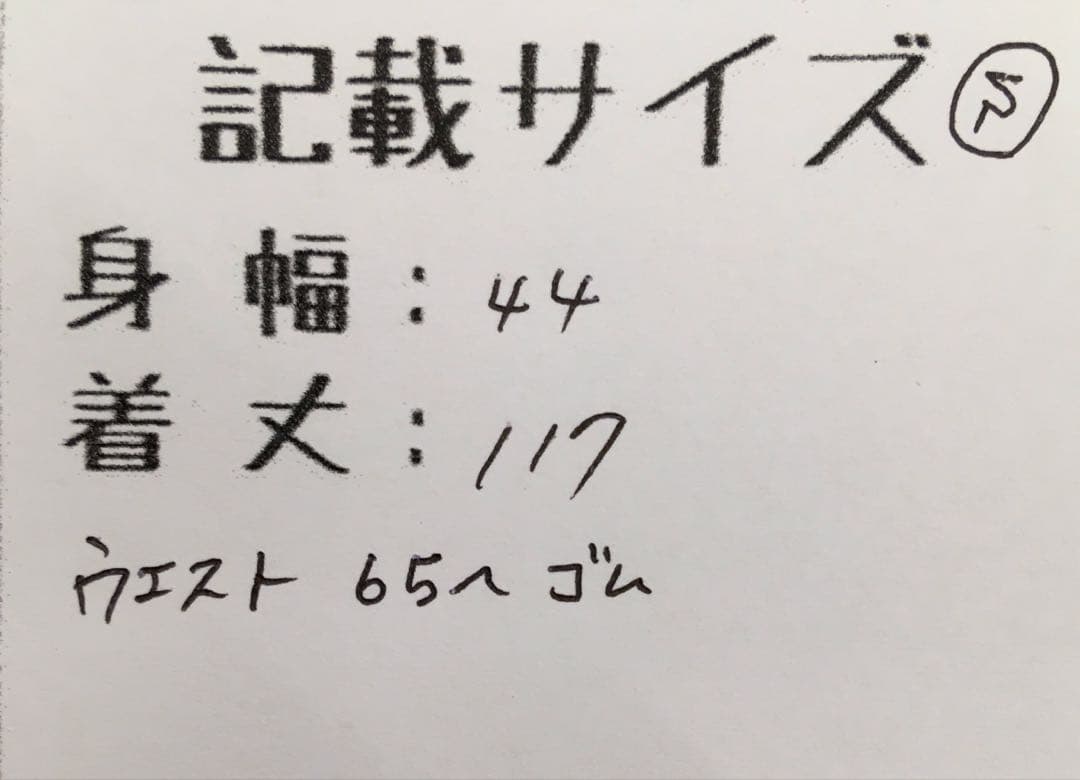 記載サイズ
身幅：44
着丈：117
ウエスト 65〜 ゴム